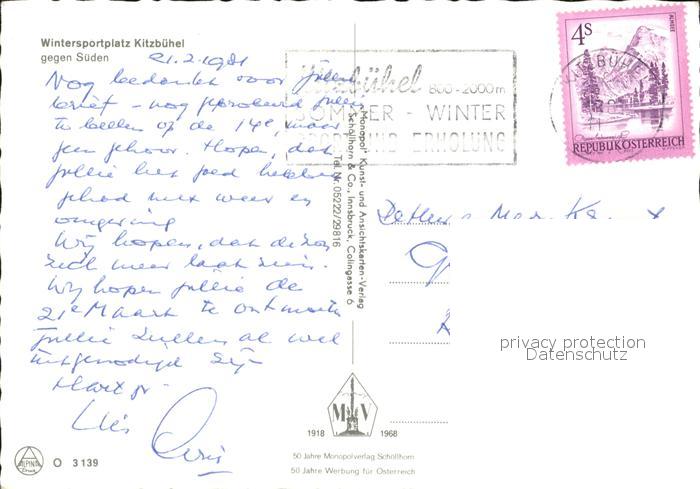 Wintersportplatz Kitzbühel
gegen Süden
21.2.1981
Nog bedankt voor jullie
brief - nog geprobeerd jullie
te bellen op de 14e, maar
geen gehoor. Hopen, dat
jullie het goed hebben
gehad met weer en
omgeving
Wij hopen, dat de zon
zich meer laat zien.
Wij hopen jullie de
21e Maart te ontmoeten
jullie zullen al wel
uitgenodigd zijn
Hart gr.
Kitzbühel 800-2000m
SOMMER - WINTER
SPORT UND ERHOLUNG
4s
ALMSEE
REPUBLIK ÖSTERREICH
KITZBÜHEL
"Monopol" Kunst- und Ansichtskarten-Verlag
Schöllhorn & Co., Innsbruck, Colingasse 6
Tel. Nr. 05222/29816
privacy protection
Datenschutz
M V
1918 1968
50 Jahre Monopolverlag Schöllhorn
50 Jahre Werbung für Österreich
ALPINA
Druck
O 3139